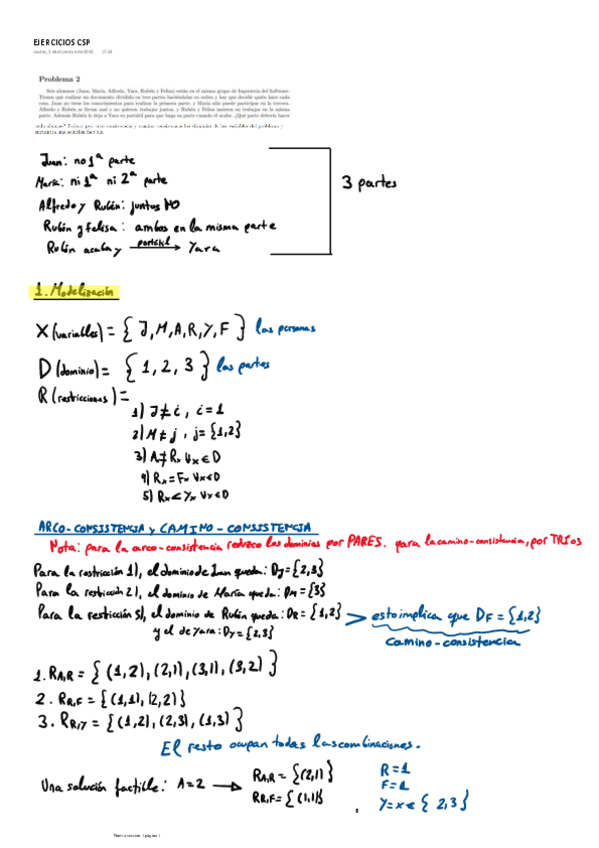 EJERCICIOS CSP
Problema 2
Seis alumnos (Juan, María, Alfredo, Yara, Rubén y Felisa) están en el mismo grupo de Ingeniería del Software.
Tienen que realizar un documento dividido en tres partes haciéndolas en orden y hay que decidir quién hace cada
cosa. Juan no tiene los conocimientos para realizar la primera parte, y María sólo puede participar en la tercera.
Alfredo y Rubén se llevan mal y no quieren trabajar juntos, y Rubén y Felisa insisten en trabajar en la misma
parte. Además Rubén le deja a Yara su portátil para que haga su parte cuando él acabe. ¿Qué parte debería hacer
Juan: no 1ª parte
María: ni 1ª ni 2ª parte
Alfredo y Rubén: juntos NO
Rubén y felisa: ambos en la misma parte
Rubén acaba y portátil → Yara
3 partes
1. Modelización
X (variables) = { J, M, A, R, Y, F } las personas
D (dominio) = { 1, 2, 3 } las partes
R (restricciones) =
1) J ≠ i, i = 1
2) M ≠ j, j = {1,2}
3) Aₓ ≠ Rₓ ∀x ∈ D
4) Rₓ = Fₓ ∀x ∈ D
5) Rₓ < Yₓ ∀x ∈ D
ARCO-CONSISTENCIA y CAMINO-CONSISTENCIA
Nota: para la arco-consistencia reduzco los dominios por PARES. para la camino-consistencia, por TRIOS
Para la restricción 1), el dominio de Juan queda: DJ = {2,3}
Para la restricción 2), el dominio de María queda: DM = {3}
Para la restricción 5), el dominio de Rubén queda: DR = {1,2} > esto implica que DF = {1,2}
y el de Yara: DY = {2,3}
camino-consistencia
1. RA,R = { (1,2), (2,1), (3,1), (3,2) }
2. RR,F = { (1,1), (2,2) }
3. RR,Y = { (1,2), (2,3), (1,3) }
El resto ocupan todas las combinaciones.
Una solución factible: A=2 → RA,R = {(2,1)}
RR,F = {(1,1)}
R = 1
F = 1
Y = x ∈ { 2,3 }